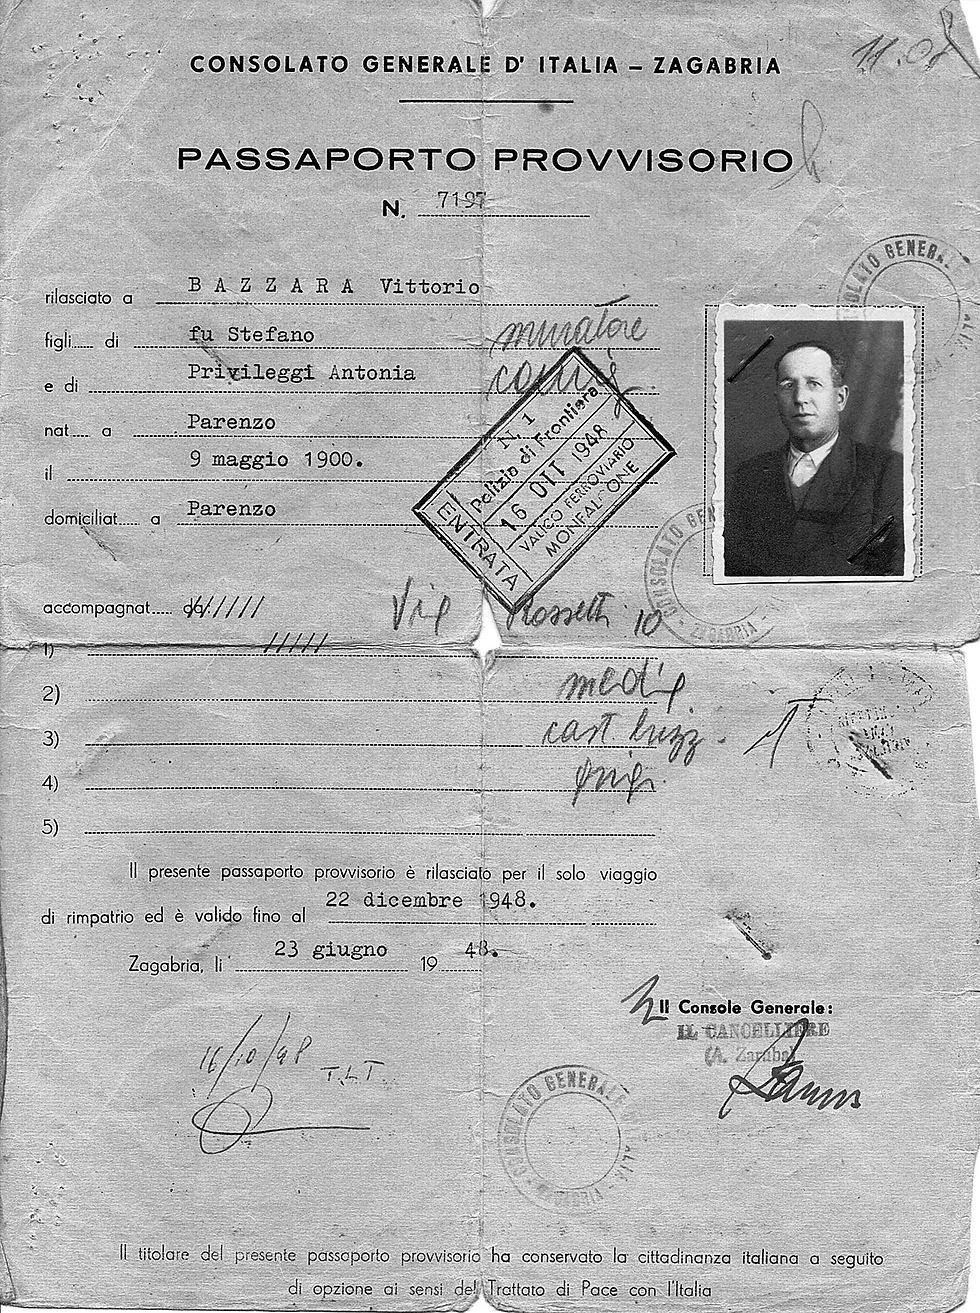 CONSOLATO GENERALE D' ITALIA – ZAGABRIA
PASSAPORTO PROVVISORIO
N. 7197
rilasciato a BAZZARA Vittorio
figli..... di fu Stefano muratore
e di Privileggi Antonia
nat.... a Parenzo
il 9 maggio 1900.
domiciliat..... a Parenzo
N. 1
Polizia di Frontiera
16 OTT 1948
VALICO FERROVIARIO
MONFALCONE
ENTRATA
CONSOLATO GENERALE
CONSOLATO GEN
- ZAGABRIA -
accompagnat..... da: //////
Rossetti 10
1) /////
2)
3)
4)
5)
Il presente passaporto provvisorio è rilasciato per il solo viaggio
di rimpatrio ed è valido fino al 22 dicembre 1948.
Zagabria, li 23 giugno 19 48.
Il Console Generale:
IL CANCELLIERE
16/10/48 T.L.T
CONSOLATO GENERALE D'ITALIA - ZAGABRIA -
Il titolare del presente passaporto provvisorio ha conservato la cittadinanza italiana a seguito
di opzione ai sensi del Trattato di Pace con l'Italia